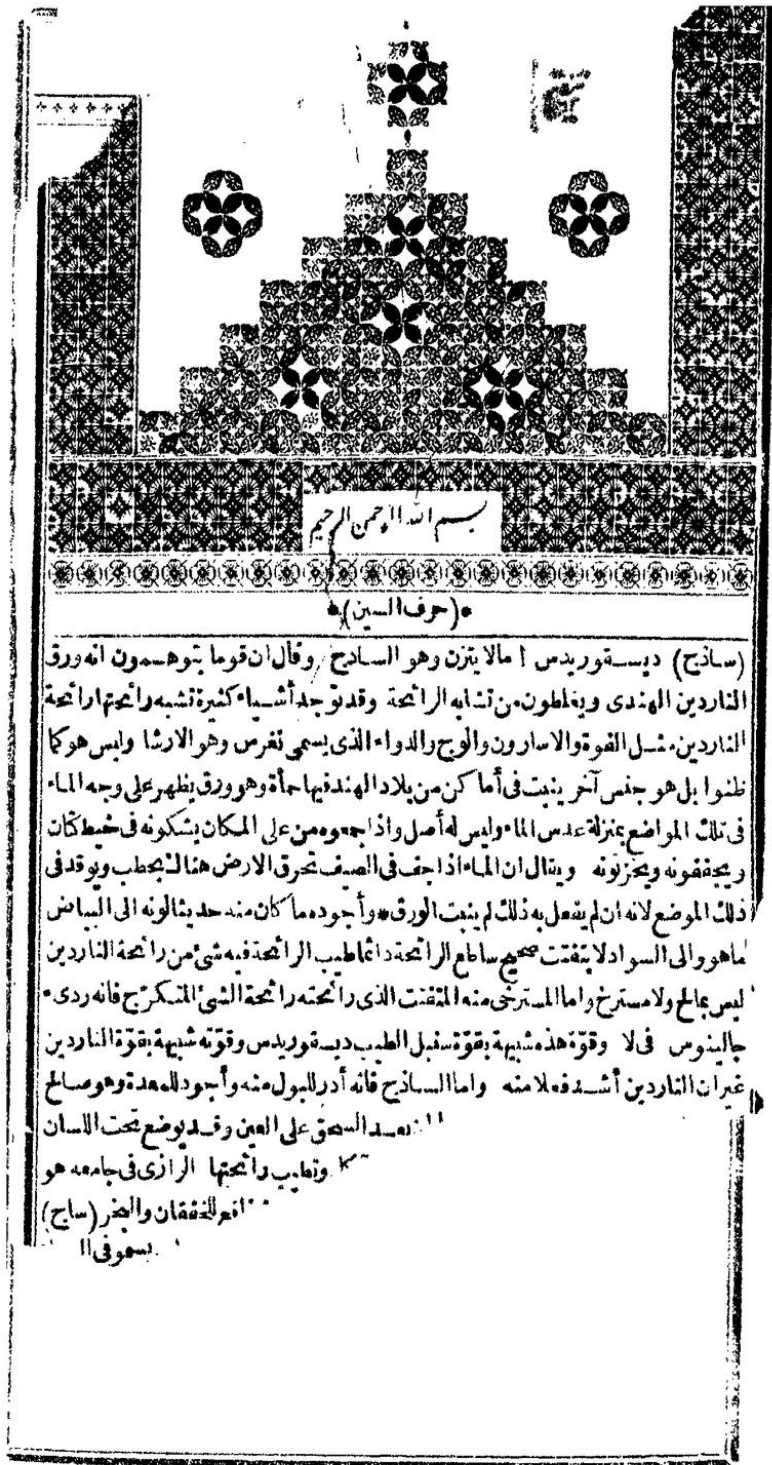 بسم الله الرحمن الرحيم
*(حرف السين)*
(ساذج) ديسقوريدس امالايترن وهو الساذج وقال ان قوما يتوهمون انه ورق
الناردين الهندى ويغلطون من تشابه الرائحة وقد توجد أشياء كثيرة تشبه رائحتها رائحة
الناردين مثل الفوة والاسارون والوج والدواء الذى يسمى نغرس وهو الارشا وليس هو كما
ظنوا بل هو جنس آخر ينبت فى أماكن من بلاد الهند فيها حمأة وهو ورق يظهر على وجه الماء
فى تلك المواضع بمنزلة عدس الماء وليس له أصل واذا جمعوه من على المكان يشكونه فى خيط كتان
ويجففونه ويخزنونه ويقال ان الماء اذا جف فى الصيف تحرق الارض هنالك بحطب ويوقد فى
ذلك الموضع لانه ان لم يفعل به ذلك لم ينبت الورق * وأجوده ما كان منه حديثا لونه الى البياض
ما هو والى السواد لا يتفتت صحيح ساطع الرائحة دائما طيب الرائحة فيه شئ من رائحة الناردين
ليس بمالح ولا مسترخ واما المسترخى منه المتفتت الذى رائحته رائحة الشئ المتكرج فانه ردىء
جالينوس فى لا وقوّة هذه شبيهة بقوّة سنبل الطيب ديسقوريدس وقوّته شبيهة بقوّة الناردين
غير ان الناردين أشد فعلا منه واما الساذج فانه أدر للبول منه وأجود للمعدة وهو صالح
بعد السحق على العين وقد يوضع تحت اللسان
وتطييب رائحتها الرازى فى جامعه هو
نافع للخفقان والبخر (ساج)
يسمو فى